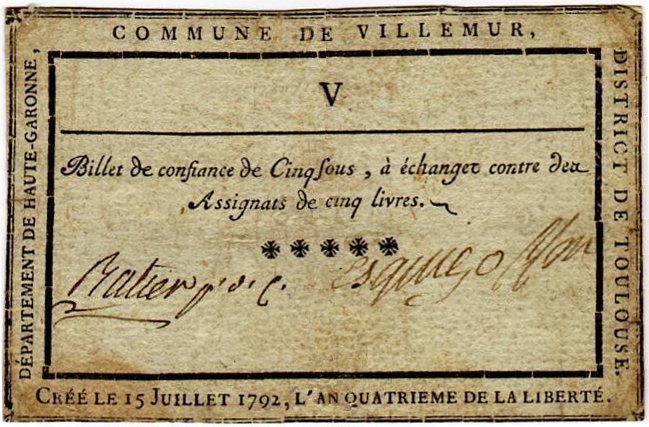 COMMUNE DE VILLEMUR,
DÉPARTEMENT DE HAUTE-GARONNE,
DISTRICT DE TOULOUSE.
V
Billet de confiance de Cinq ſous, à échanger contre des
Assignats de cinq livres.
Ratier
CRÉÉ LE 15 JUILLET 1792, L'AN QUATRIEME DE LA LIBERTÉ.